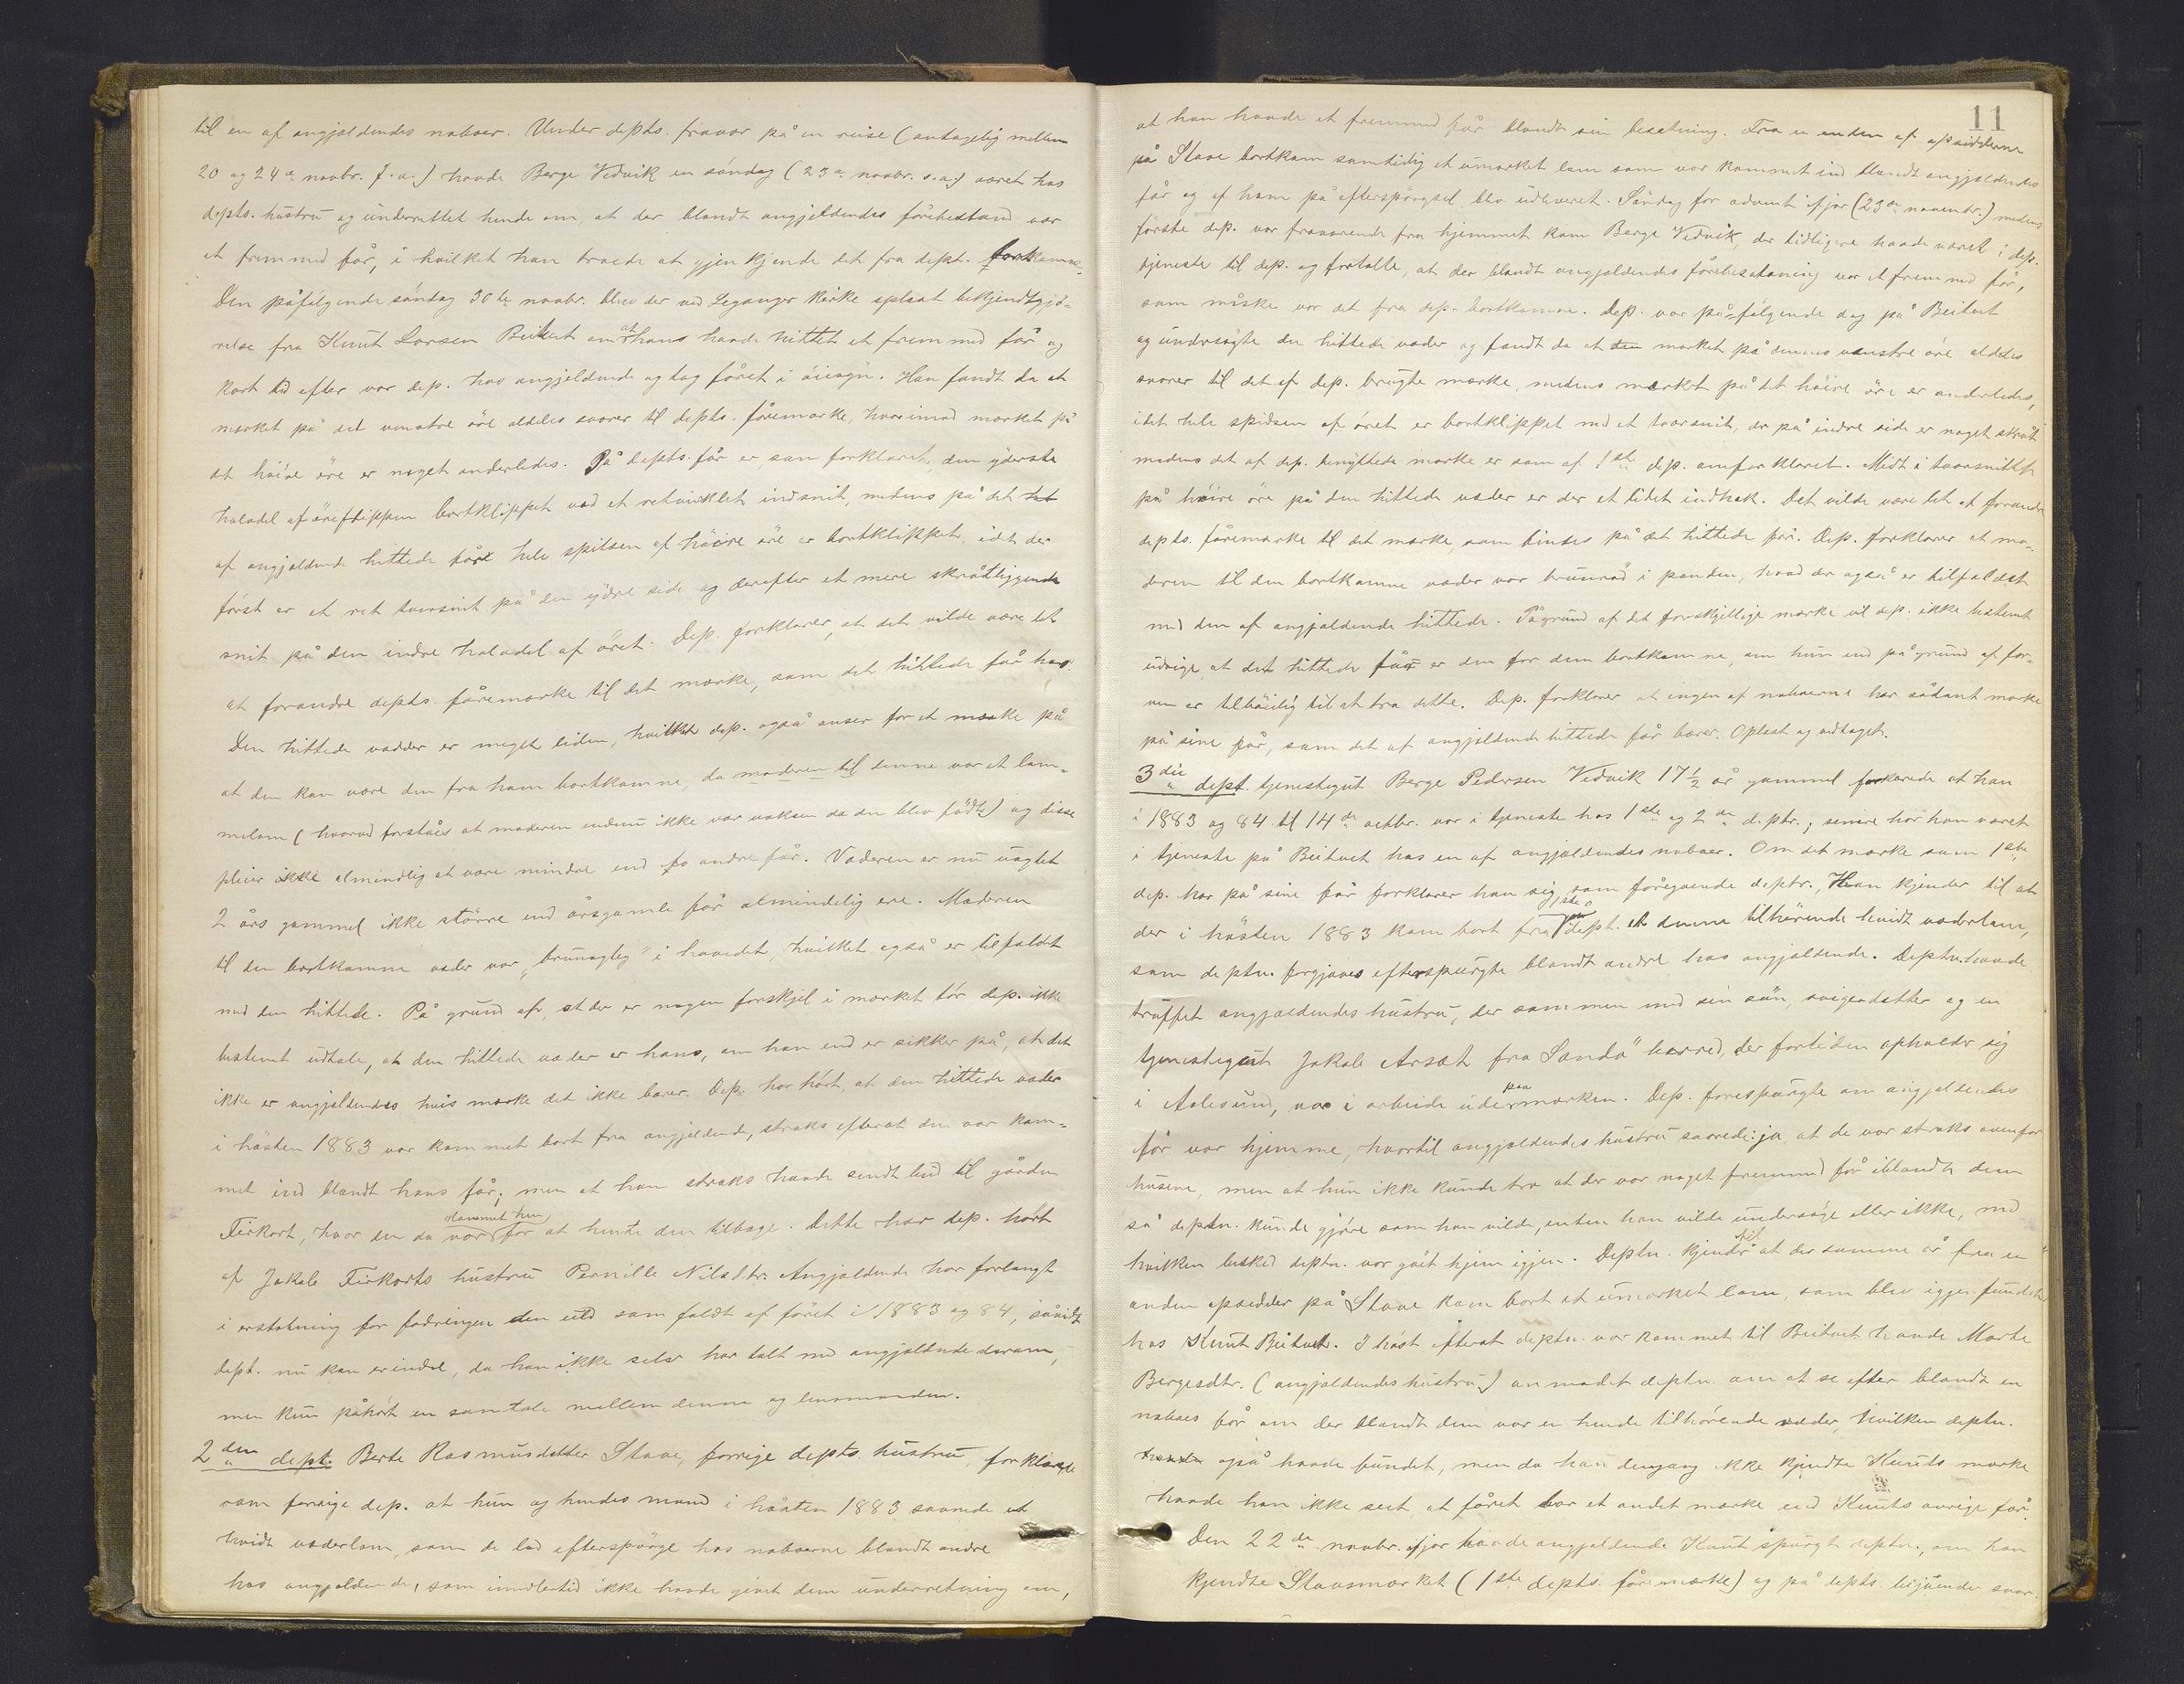 til en af angjældendes naboer. Under depts. fravær på en reise (antagelig mellem
20 og 24de novbr. f. a.) havde Berge Vedvik en søndag (23de novbr. s.a.) været hos
depts. hustru og underrettet hende om, at der blandt angjeldendes fårebestand var
et fremmed får, i hvilket han troede at gjenkjende det fra dept. bortkomne.
Den påfølgende søndag 30te novbr. blev der ved Leganger kirke oplæst bekjendtgjø-
relse fra Knut Larsen Beitvet om at hans havde hittet et fremmed får og
kort tid efter var dep. hos angjeldende og tog fåret i øiesyn. Han fandt da at
mærket på det venstre øre aldeles svarer til depts. fåremærke, hvorimod mærket på
det høire øre er noget anderledes. På depts. får er, som forklaret, den yderste
halvdel af øreflippen bortklippet ved et retvinklet indsnit, medens på det
af angjældende hittede får hele spidsen af høire øre er bortklippet, idet der
først er et ret tversnit på den ydre side og derefter et mere skråtliggende
snit på den indre halvdel af øret. Dep. forklarer, at det vilde være let
at forandre depts. fåremærke til det mærke, som det hittede får har.
Den hittede vædder er meget liden, hvilket dep. også anser for et mærke på
at den kan være den fra ham bortkomne, da moderen til denne var et lam-
melam (hvorved forståes at moderen endnu ikke var voksen da den blev født) og disse
pleier ikke almindelig at være mindre end andre får. Væderen er nu uagtet
2 års gammel ikke større end årsgamle får almindelig ere. Moderen
til den bortkomne væder var "brunagtig" i hovedet, hvilket også er tilfældet
med den hittede. På grund af, at der er nogen forskjel i mærket tør dep. ikke
bestemt udtale, at den hittede væder er hans, om han end er sikker på, at det
ikke er angjældendes hvis mærke det ikke bærer. Dep. har hørt, at den hittede væder
i høsten 1883 var kommet bort fra angjeldende, straks efterat den var kom-
met ind blandt hans får; men at han straks havde sendt bud til gården
Fiskort, hvor den da var kommet hen for at hente den tilbage. Dette har dep. hørt
af Jakob Fiskorts hustru Pernille Nilsdtr. Angjældende har forlangt
i erstatning for fodringen den uld som faldt af fåret i 1883 og 84, såvidt
dept. nu kan erindre, da han ikke selv har talt med angjældende derom,
men kun påhørt en samtale mellem denne og lensmanden.
2den dept. Berte Rasmusdatter Stave, forrige depts. hustru, forklarede
som forrige dep. at hun og hendes mand i høsten 1883 savnede et
hvidt væderlam, som de lod efterspørge hos naboerne blandt andre
hos angjældende, som imidlertid ikke havde givet dem underretning om,
11
at han havde et fremmed får blandt sin besætning. Fra en anden af opsidderne
på Stave bortkom samtidig et umærket lam som var kommet ind blandt angjældendes
får og af ham på efterspørgsel blev udleveret. Søndag før advent ifjor (23de novembr.) medens
første dep. var fraværende fra hjemmet kom Berge Vedvik, der tidligere havde været i dep.
tjeneste til dep. og fortalte, at der blandt angjældendes fårebesætning var et fremmed får,
som måske var det fra dep. bortkomne. Dep. var påfølgende dag på Beitvet
og undersøgte den hittede væder og fandt da at mærket på dennes venstre øre aldeles
svarer til det af dep. brugte mærke, medens mærket på det høire øre er anderledes,
idet hele spidsen af øret er bortklippet med et tversnit, der på indre side er noget skråt
medens det af dep. benyttede mærke er som af 1ste dep. omforklaret. Midt i tversnittet
på høire øre på den hittede væder er der et lidet indhak. Det vilde være let at forandre
depts. fåremærke til det mærke, som findes på det hittede får. Dep. forklarer at mo-
deren til den bortkomne væder var brunrød i panden, hvad der også er tilfældet
med den af angjældende hittede. På grund af det forskjellige mærke vil dep. ikke bestemt
udsige, at det hittede får er den for dem bortkomne, om hun end på grund af for-
men er tilbøielig til at tro dette. Dep. forklarer at ingen af naboerne har sådant mærke
på sine får, som det af angjeldende hittede får bærer. Oplæst og vedtaget.
3die dept. tjenestegut Berge Pedersen Vedvik 17½ år gammel forklarede at han
i 1883 og 84 til 14de octbr. var i tjeneste hos 1ste og 2den deptr.; senere har han været
i tjeneste på Beitvet hos en af angjældendes naboer. Om det mærke som 1ste
dep. har på sine får forklarer han sig som foregående deptr. Han kjender til at
der i høsten 1883 kom bort fra 1ste dept. et denne tilhørende hvidt væderlam,
som deptn. forgjæves efterspurgte blandt andre hos angjældende. Deptn. havde
truffet angjældendes hustru, der sammen med sin søn, svigerdatter og en
tjenestegut Jakob Arsæt fra Sandø herred, der fortiden opholder sig
i Aalesund, var i arbeide ude paa marken. Dep. forespurgte om angjældendes
får var hjemme, hvortil angjældendes hustru svarede: ja, at de var straks ovenfor
husene, men at hun ikke kunde tro at der var noget fremmed får iblandt dem
så deptn. kunde gjøre som han vilde, enten han vilde undersøge eller ikke, med
hvilken besked deptn. var gået hjem igjen. Deptn. kjender til at der samme år fra en
anden opsidder på Stave kom bort et umærket lam, som blev igjenfundet
hos Knut Beitvet. I høst efterat deptn. var kommet til Beitvet havde Marte
Bergesdtr. (angjældendes hustru) anmodet deptn. om at se efter blandt en
naboes får om der blandt dem var en hende tilhørende væder, hvilken deptn.
også havde fundet, men da han dengang ikke kjendte Knuts mærke
havde han ikke seet, at fåret bar et andet mærke end Knuts øvrige får.
Den 22de novbr. ifjor havde angjældende Knut spurgt deptn., om han
kjendte Stavsmærket (1ste depts. fåremærke) og på depts. bejaende svar